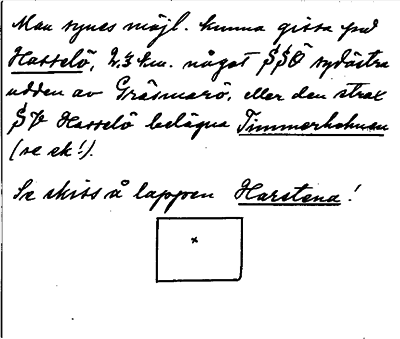 Man synes möjl. kunna gissa på
Hasselö, 2.3 km. något SSO sydöstra
udden av Gräsmarö, eller den strax
SV Hasselö belägna Timmerholmen
(se sk!).
Se skiss å lappen Harstena!
x